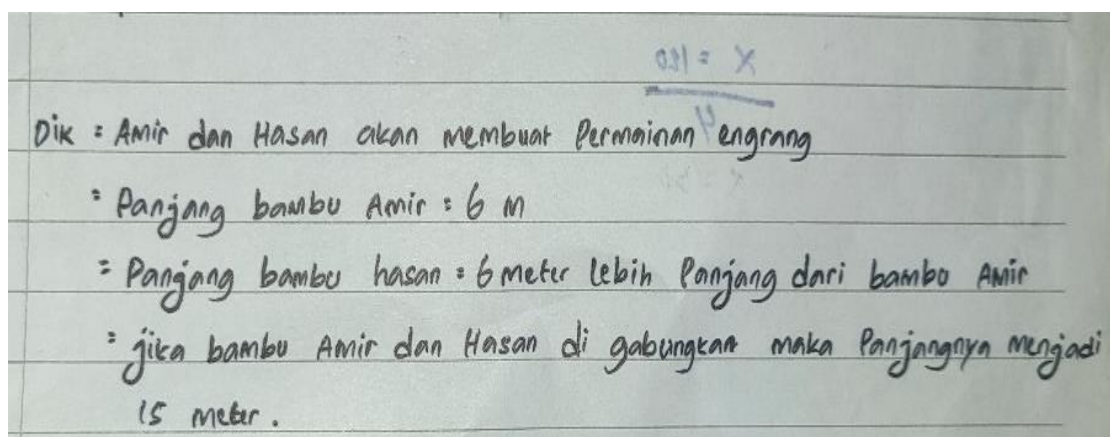 Dik : Amir dan Hasan akan membuat Permainan engrang
= Panjang bambu Amir : 6 m
= Panjang bambu hasan : 6 meter lebih Panjang dari bambu Amir
= jika bambu Amir dan Hasan di gabungkan maka Panjangnya menjadi
15 meter.